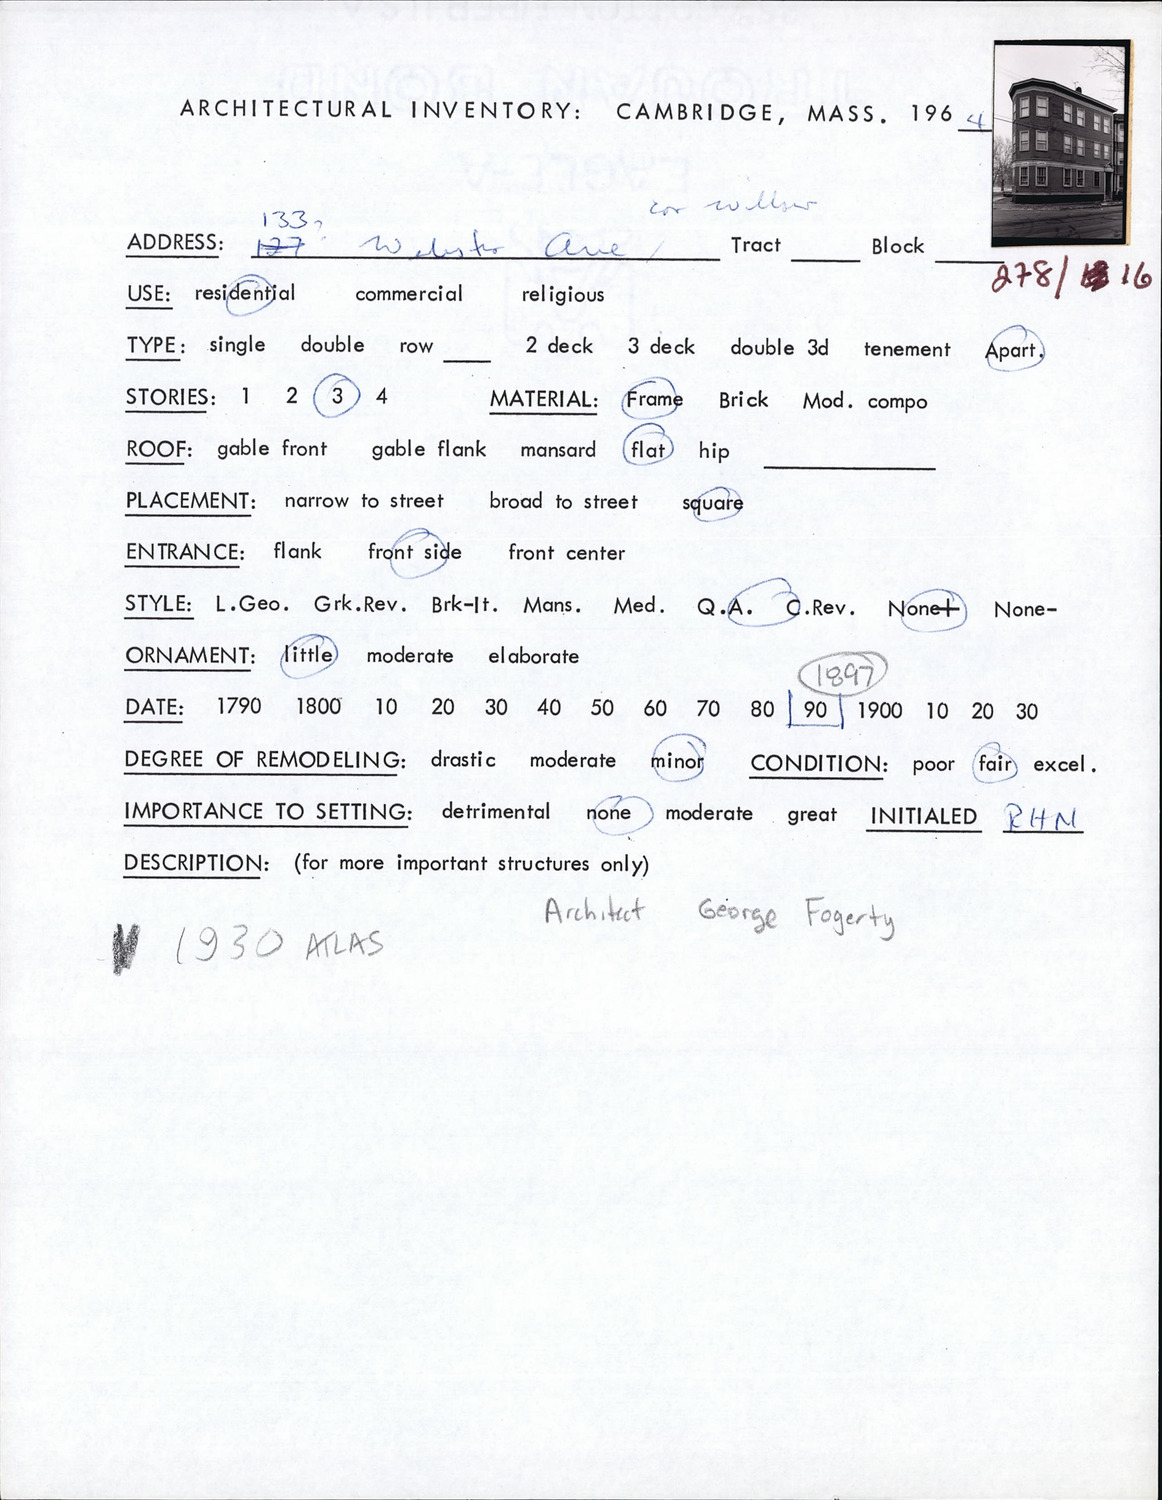 ARCHITECTURAL INVENTORY: CAMBRIDGE, MASS. 1964
cor Willow
133?
ADDRESS: 127 Webster Ave Tract Block
278/ 16
USE: residential commercial religious
TYPE: single double row 2 deck 3 deck double 3d tenement Apart.
STORIES: 1 2 3 4 MATERIAL: Frame Brick Mod. compo
ROOF: gable front gable flank mansard flat hip
PLACEMENT: narrow to street broad to street square
ENTRANCE: flank front side front center
STYLE: L.Geo. Grk.Rev. Brk-It. Mans. Med. Q.A. C.Rev. None+ None-
ORNAMENT: little moderate elaborate
1897
DATE: 1790 1800 10 20 30 40 50 60 70 80 90 1900 10 20 30
DEGREE OF REMODELING: drastic moderate minor CONDITION: poor fair excel.
IMPORTANCE TO SETTING: detrimental none moderate great INITIALED RHN
DESCRIPTION: (for more important structures only)
Architect George Fogerty
1930 ATLAS